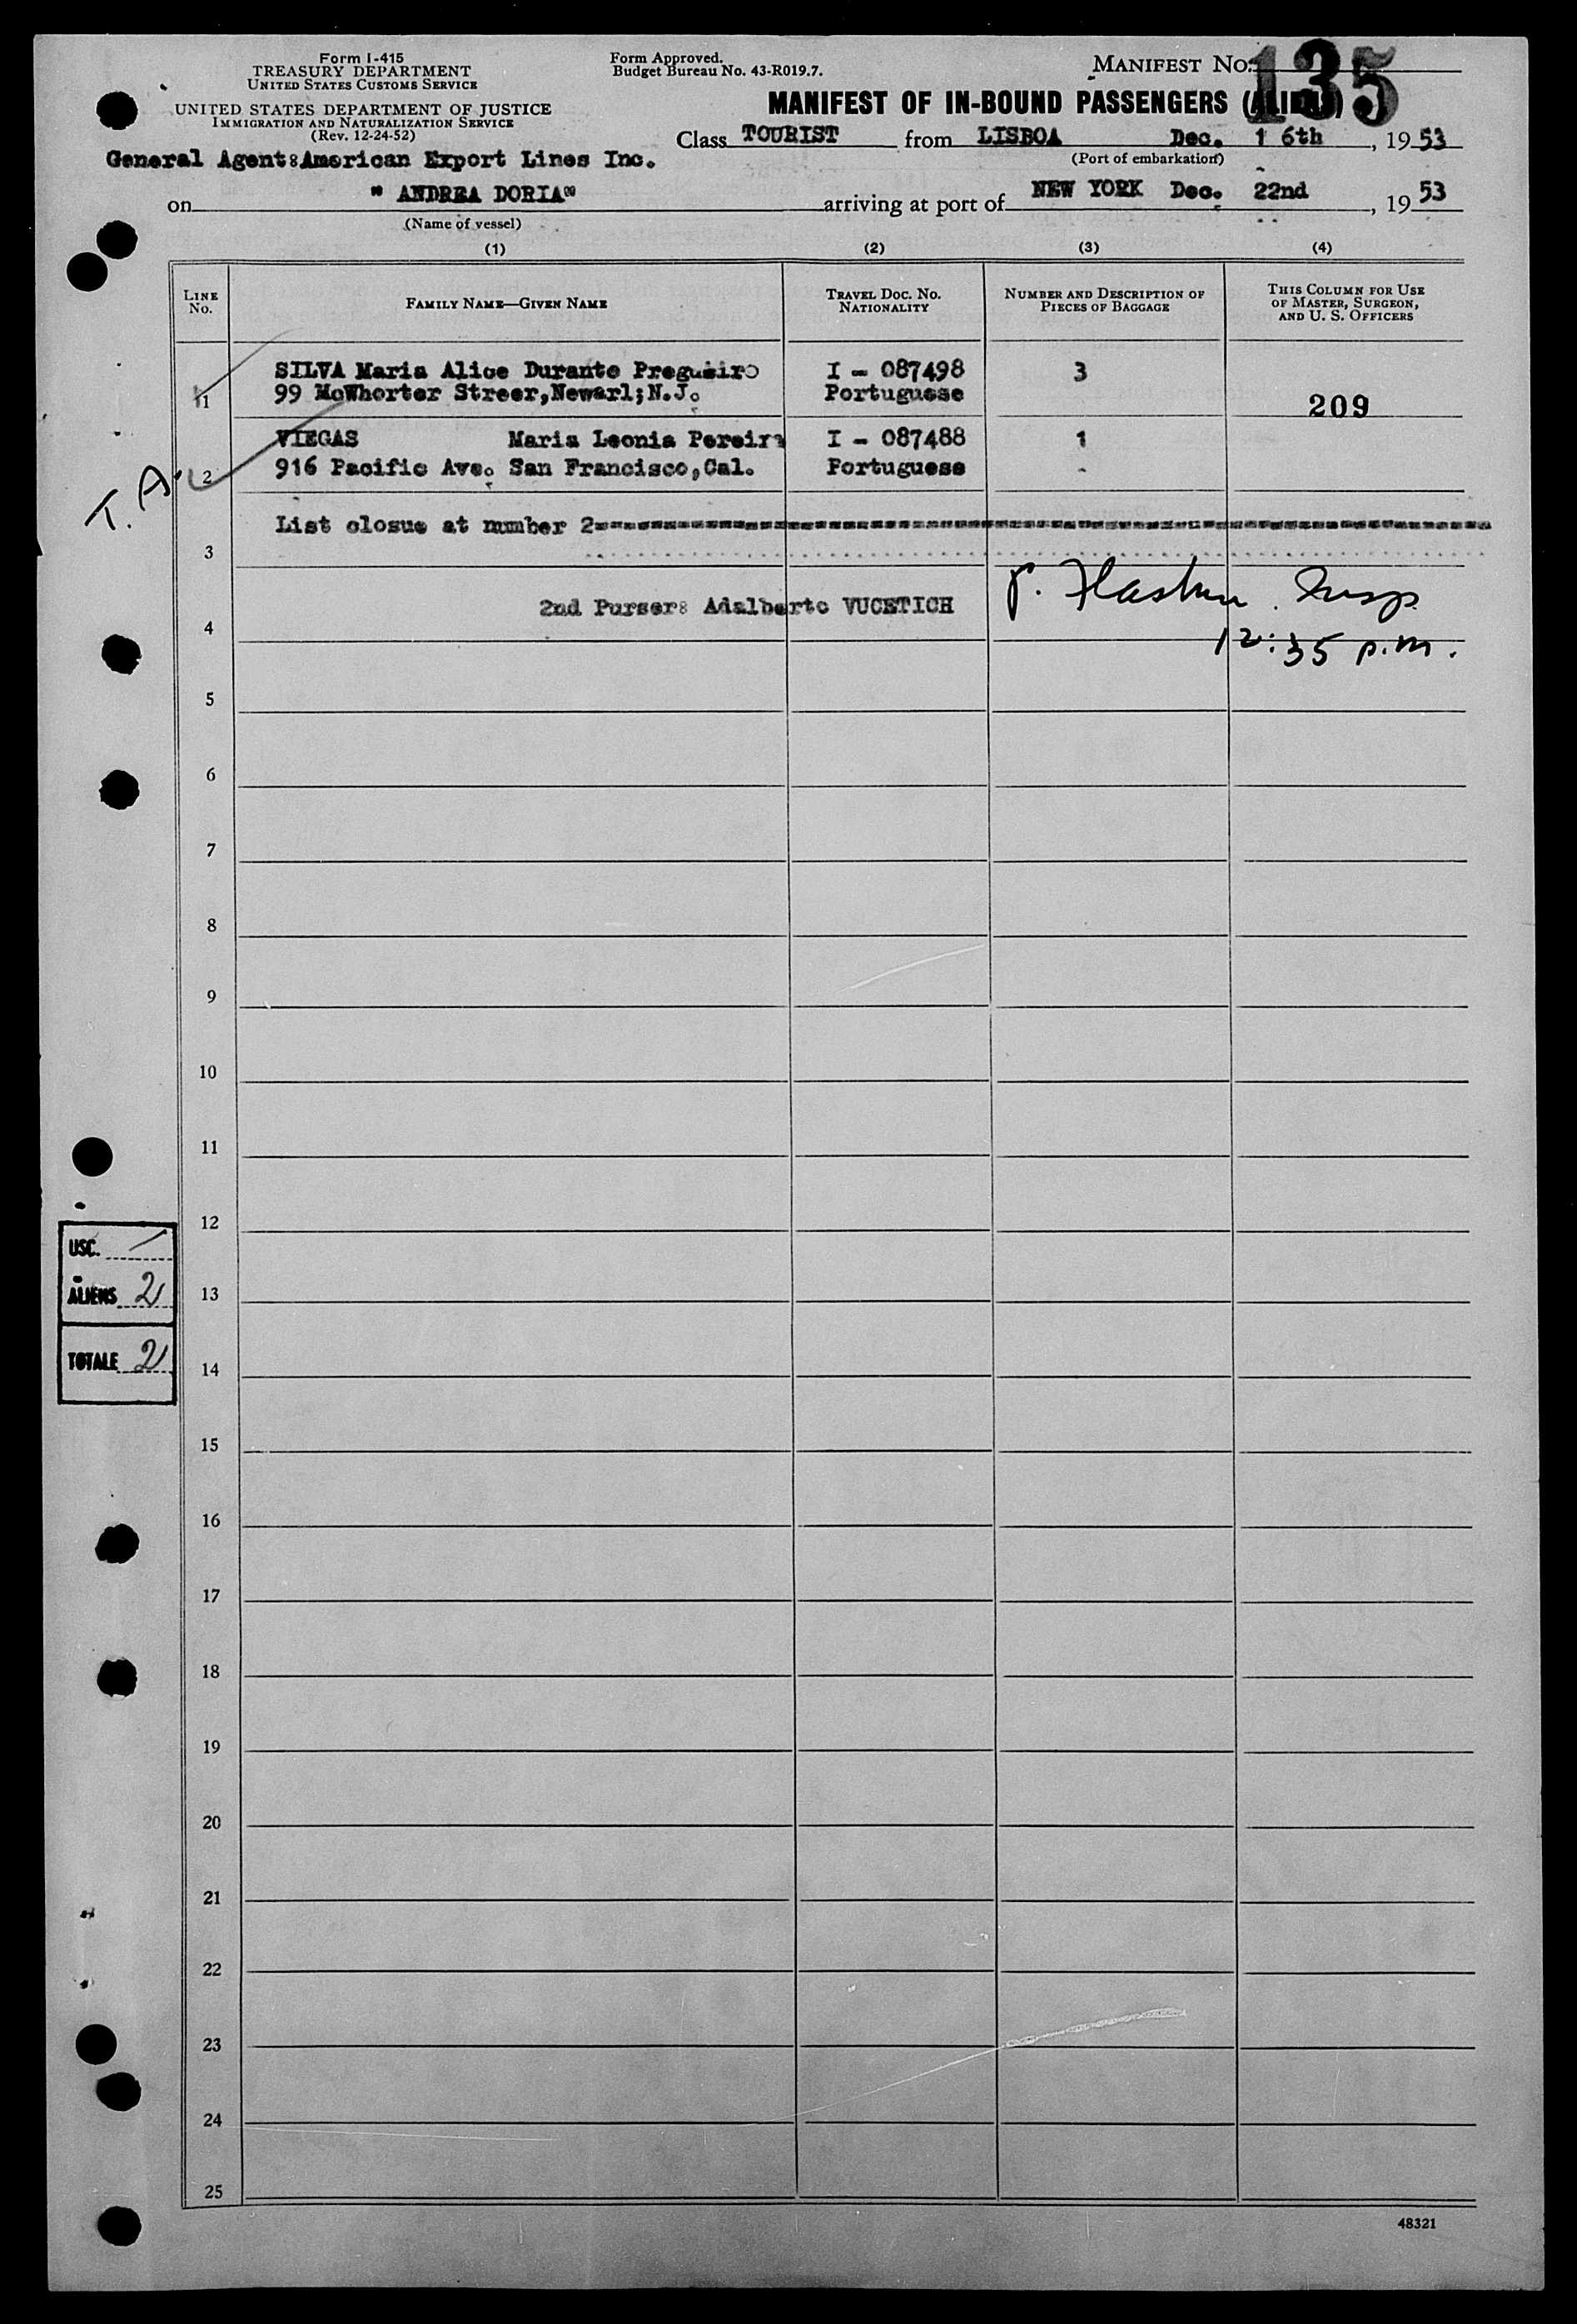 Form I-415
TREASURY DEPARTMENT
UNITED STATES CUSTOMS SERVICE
UNITED STATES DEPARTMENT OF JUSTICE
IMMIGRATION AND NATURALIZATION SERVICE
(Rev. 12-24-52)
Form Approved.
Budget Bureau No. 43-R019.7.
MANIFEST No. 135
MANIFEST OF IN-BOUND PASSENGERS (ALIENS)
Class TOURIST from LISBOA Dec. 1 6th, 1953
(Port of embarkation)
General Agent:American Export Lines Inc.
on " ANDREA DORIA" arriving at port of NEW YORK Dec. 22nd, 1953
(Name of vessel)
(1) (2) (3) (4)
LINE No. FAMILY NAME—GIVEN NAME TRAVEL DOC. No. NATIONALITY NUMBER AND DESCRIPTION OF PIECES OF BAGGAGE THIS COLUMN FOR USE OF MASTER, SURGEON, AND U. S. OFFICERS
SILVA Maria Alice Durante Pregueiro I - 087498 3
1 99 McWhorter Streer,Newarl;N.J. Portuguese 209
VIEGAS Maria Leonia Pereira I - 087488 1
T. A. 2 916 Pacific Ave. San Francisco,Cal. Portuguese -
List closue at number 2
3
2nd Purser: Adalberto VUCETICH Insp
4
12:35 p.m.
5
6
7
8
9
10
11
12
USC. /
13
ALIENS 2
14
TOTALE 2
15
16
17
18
19
20
21
22
23
24
25
48321